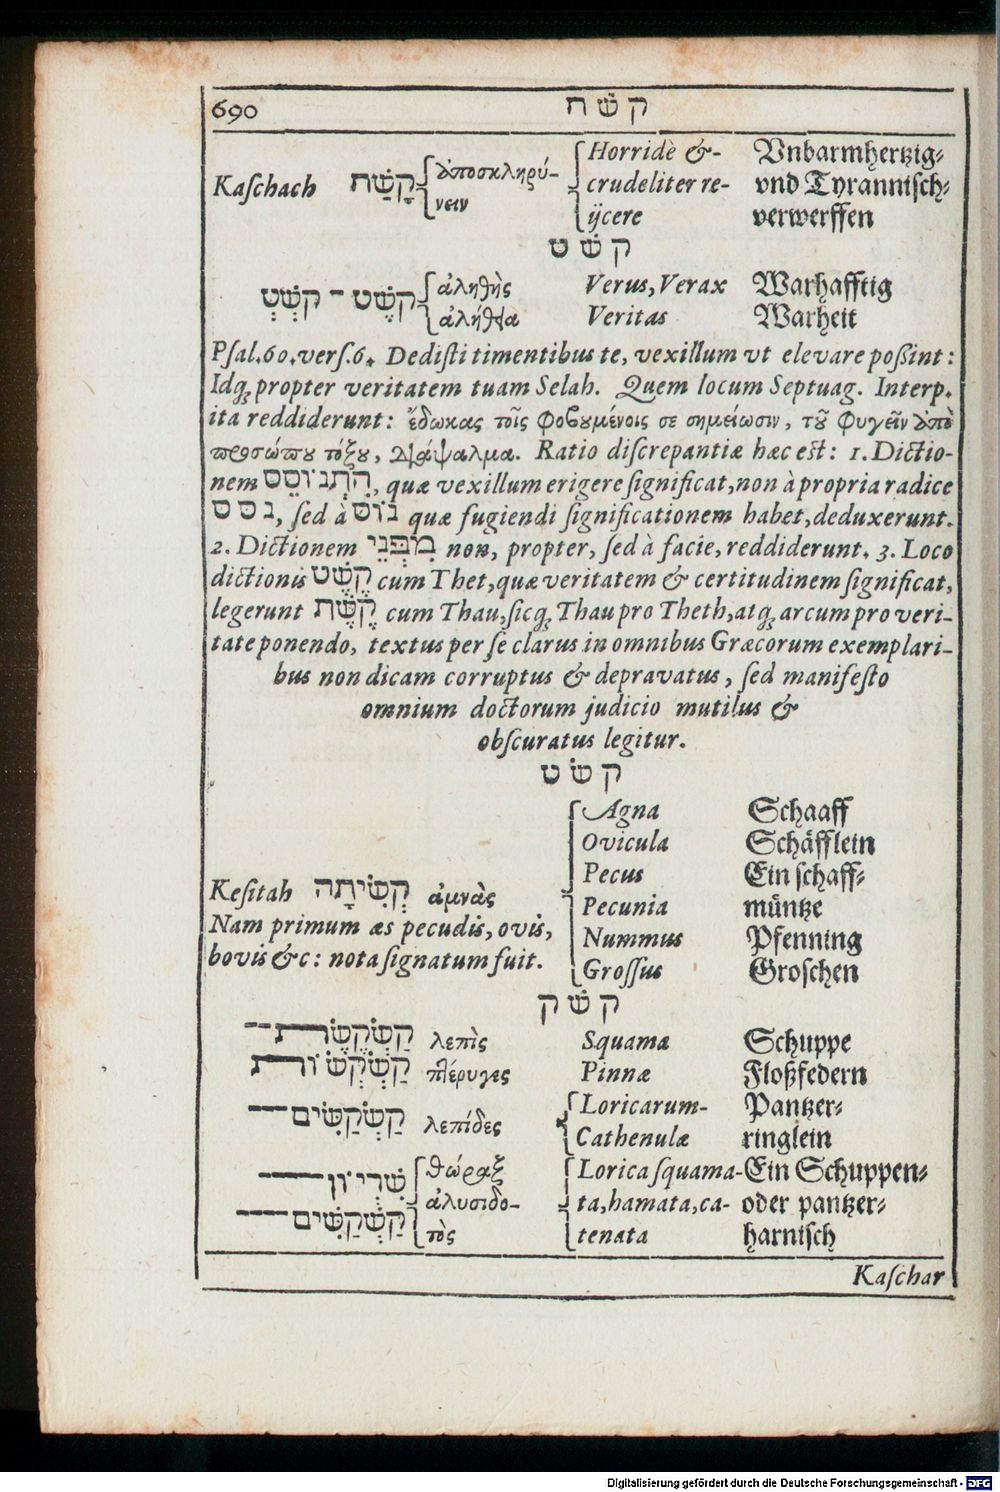 690 קשׁח
Kaſchach קָשַׁח ἀποσκληρύ- Horridè &- Vnbarmhertzig-
νειν crudeliter re- vnd Tyranniſch-
ijcere verwerffen
קשׁט
קשֶׁט – קשְׁטְ ἀληθὴς Verus, Verax Warhafftig
ἀλήθεια Veritas Warheit
Pſal. 60. verſ. 6. Dediſti timentibus te, vexillum vt elevare poßint:
Idq; propter veritatem tuam Selah. Quem locum Septuag. Interp.
ita reddiderunt: ἔδωκας τοῖς φοβουμένοις σε σημείωσιν, τοῦ φυγεῖν ἀπὸ
προσώπου τόξου, Διάψαλμα. Ratio diſcrepantiæ hæc est: 1. Dictio-
nem הִתְנוֹסֵס, quæ vexillum erigere ſignificat, non à propria radice
נסס, ſed à נוֹס quæ fugiendi ſignificationem habet, deduxerunt.
2. Dictionem מִפְּנֵי non, propter, ſed à facie, reddiderunt. 3. Loco
dictionis קֶשֶׁט cum Thet, quæ veritatem & certitudinem ſignificat,
legerunt קֶשֶׁת cum Thau, ſicq; Thau pro Theth, atq; arcum pro veri-
tate ponendo, textus per ſe clarus in omnibus Græcorum exemplari-
bus non dicam corruptus & depravatus, ſed manifeſto
omnium doctorum judicio mutilus &
obſcuratus legitur.
קשׂט
Agna Schaaff
Ovicula Schäfflein
Pecus Ein ſchaff-
Keſitah קְשִׂיתָה ἀμνὰς Pecunia müntze
Nam primum æs pecudis, ovis, Nummus Pfenning
bovis &c: nota ſignatum fuit. Groſſus Groſchen
קשׂק
קַשְׂקֶשֶׂת– λεπὶς Squama Schuppe
קַשְׂקְשׂוֹת πτέρυγες Pinnæ Floßfedern
קַשְׂקַשִּׂים– λεπίδες Loricarum- Pantzer-
Cathenulæ ringlein
שִׁרְיוֹן– θώραξ Lorica ſquama- Ein Schuppen-
ἀλυσιδο- ta, hamata, ca- oder pantzer-
קַשְׂקַשִּׂים– τὸς tenata harniſch
Kaſchar
Digitalisierung gefördert durch die Deutsche Forschungsgemeinschaft - DFG